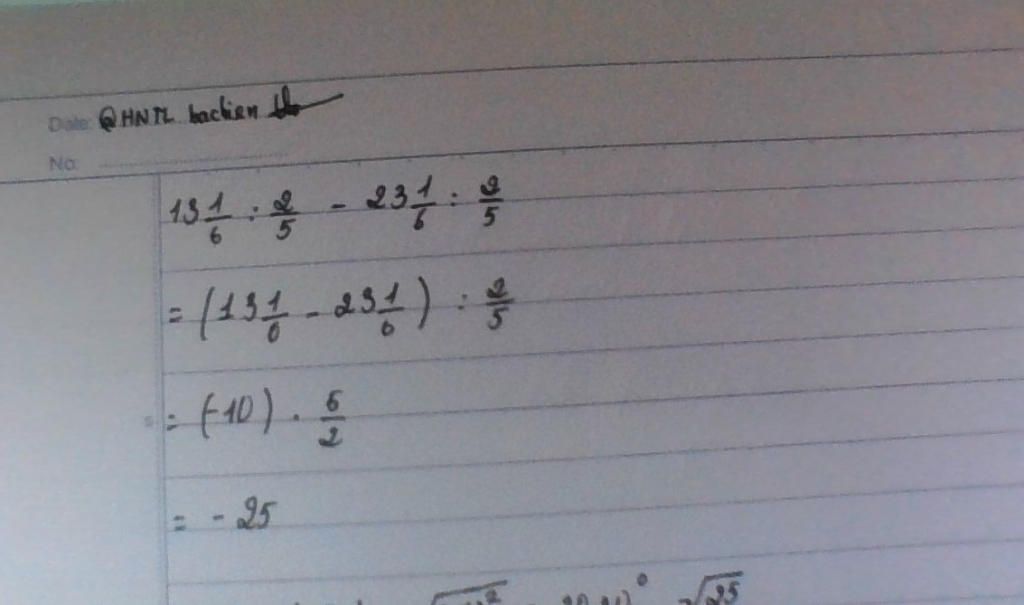 Date: @HNTL bachien
No:
13 1/6 : 2/5 - 23 1/6 : 2/5
= (13 1/6 - 23 1/6) : 2/5
= (-10) . 5/2
= - 25
√25